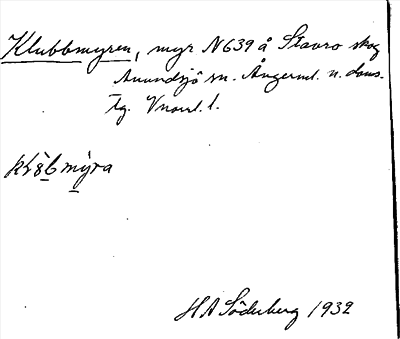 Klubbmyren, myr N 639 å Stavro skog
Anundsjö sn. Ångerml. n. doms-
tg. Vnorrl. l.
HA Söderberg 1932